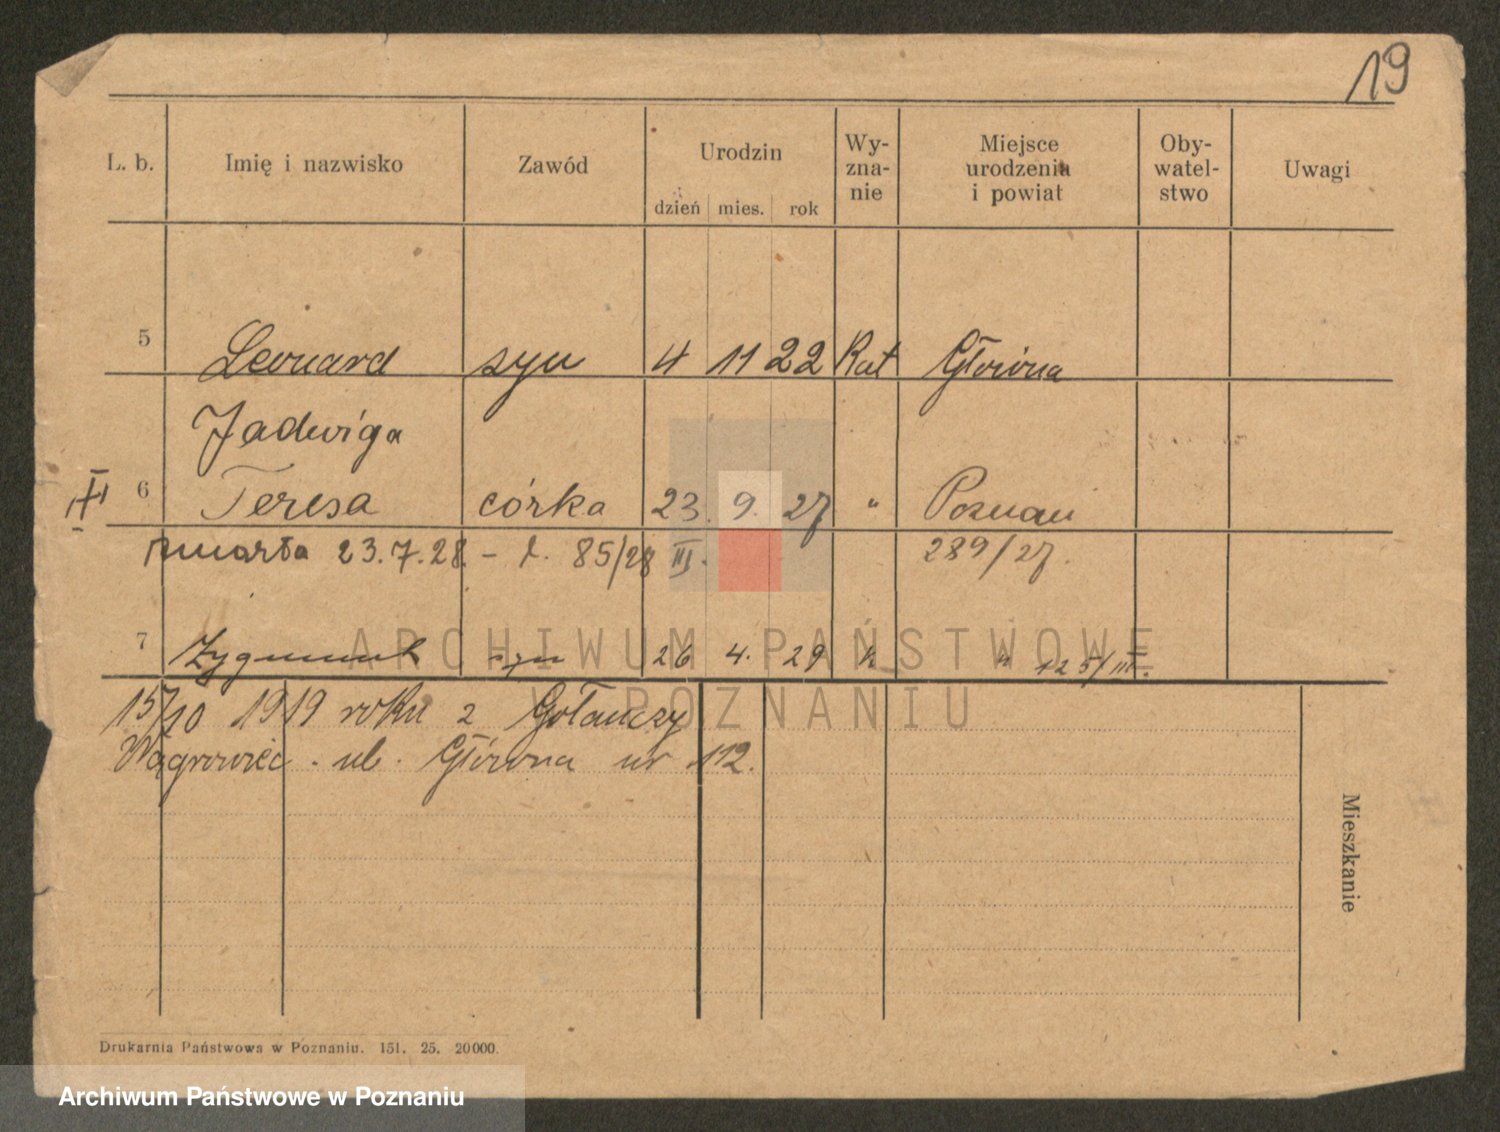 19
L. b. Imię i nazwisko Zawód Urodzin Wy-zna-nie Miejsce urodzenia i powiat Oby-watel-stwo Uwagi
dzień mies. rok
5 Leonard syn 4 11 22 Kat Główna
Jadwiga
6 Teresa córka 23. 9. 27 " Poznań
zmarła 23.7.28. - l. 85/28 III. 289/27.
7 Zygmunt syn 26 4. 29 k " 125/III.
15/10 1919 roku z Gołańczy
Wągrowiec. ul. Główna nr 112.
Mieszkanie
ARCHIWUM PAŃSTWOWE
W POZNANIU
Drukarnia Państwowa w Poznaniu. 151. 25. 20000.
Archiwum Państwowe w Poznaniu